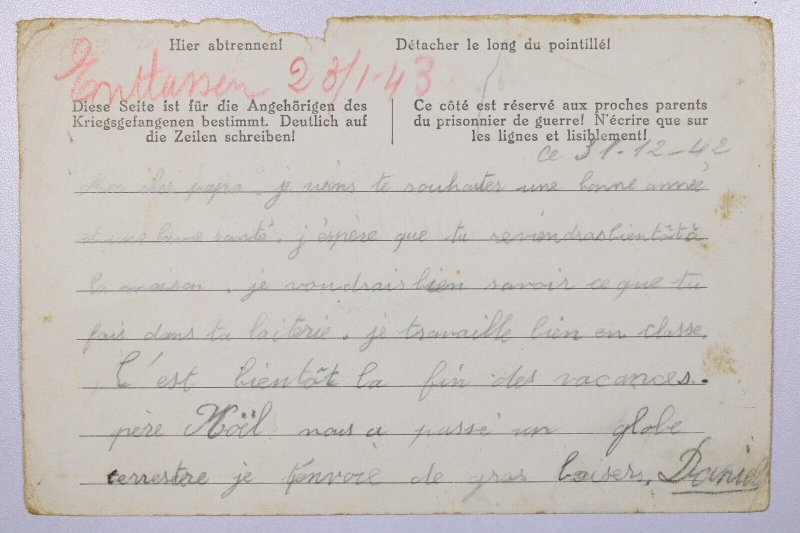 Hier abtrennen!
Détacher le long du pointillé!
Entlassen 23/1-43.
Diese Seite ist für die Angehörigen des
Kriegsgefangenen bestimmt. Deutlich auf
die Zeilen schreiben!
Ce côté est réservé aux proches parents
du prisonnier de guerre! N'écrire que sur
les lignes et lisiblement!
ce 31-12-42
Mon cher papa. je viens te souhaiter une bonne année
et une bonne santé. j'éspère que tu reviendras bientôt à
la maison. je voudrais bien savoir ce que tu
fais dans ta laiterie. je travaille bien en classe.
C'est bientôt la fin des vacances.
père Noël nous a passé un globe
terrestre je t'envoie de gros baisers. Daniel